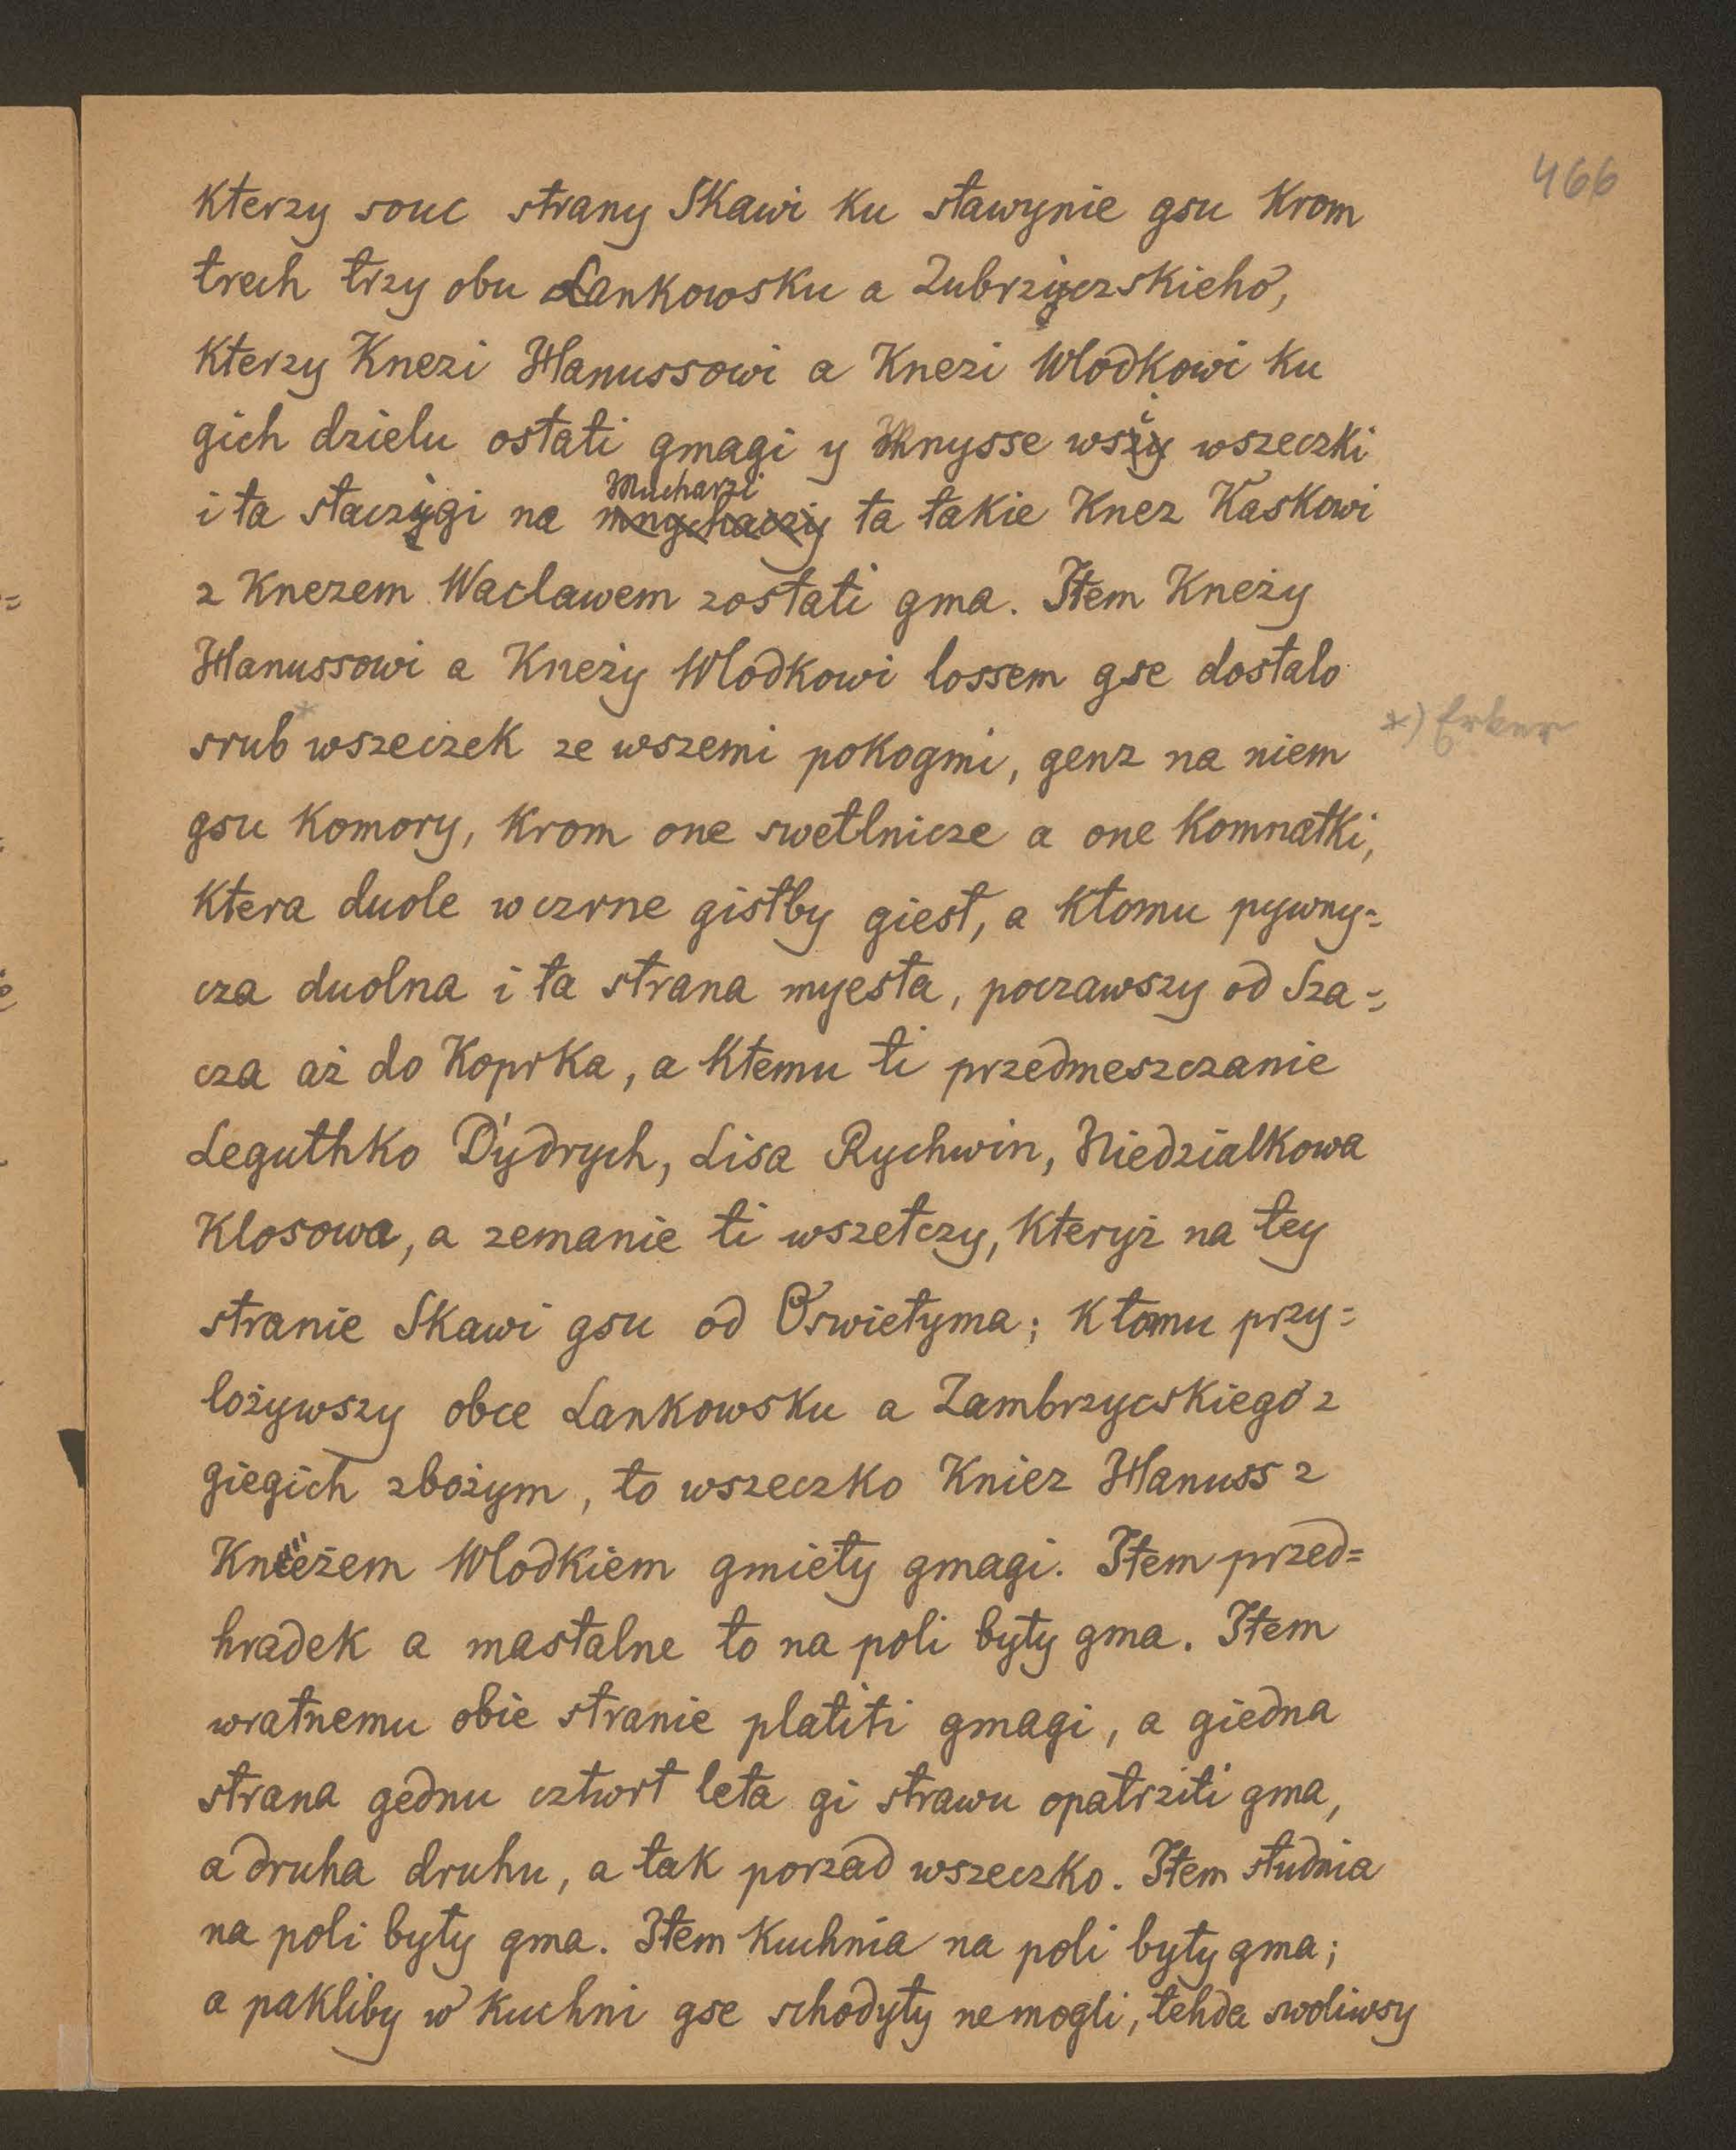 466
kterzy souc strany Skawi ku stawynie gsu krom
trech trzy obu Lankowsku a Zubrzyczskieho,
kterzy Knezi Hanussowi a Knezi Wlodkowi ku
gich dzielu ostati gmagi y Mnysse wszy wszeczki
Mucharzi
i ta staczygi na ta takie Knez Kaskowi
z Knezem Waclawem zostati gma. Item Kneży
Hanussowi a Kneży Wlodkowi lossem gse dostalo
srub* wszeczek ze wszemi pokogmi, genz na niem
*) Erker
gsu komory, krom one swetlnicze a one komnatki,
ktera duole w czrne gistby giest, a ktomu pywny=
cza duolna i ta strana myesta, poczawszy od Sza=
cza aż do Koprka, a ktemu ti przedmeszczanie
Leguthko Dydrych, Lisa Rychwin, Niedzialkowa
Klosowa, a zemanie ti wszetczy, kteryż na tey
stranie Skawi gsu od Oswietyma; k tomu przy=
lożywszy obce Lankowsku a Zambrzycskiego z
giegich zbożym, to wszeczko Kniez Hanuss z
Knieżem Wlodkiem gmiety gmagi. Item przed=
hradek a mastalne to na poli byty gma. Item
wratnemu obie stranie platiti gmagi, a giedna
strana gednu cztwrt leta gi strawu opatrziti gma,
a druha druhu, a tak porzad wszeczko. Item studnia
na poli byty gma. Item kuchnia na poli byty gma;
a pakliby w kuchni gse schodyty nemogli, tehda swoliwsy